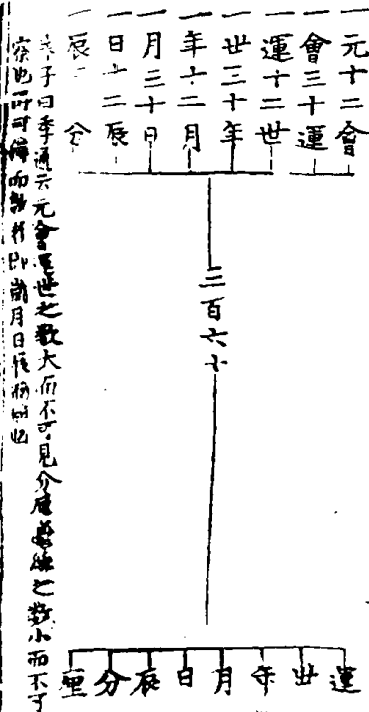 一元十二會
一會三十運
一運十二世
一世三十年
一年十二月
一月三十日
一日十二辰
一辰 分
三百六十
運
世
年
月
日
辰
分
厘
子曰季通云元會運世之數大而不可見分厘毫絲之數小而不可
察也所可得而數者即歲月日